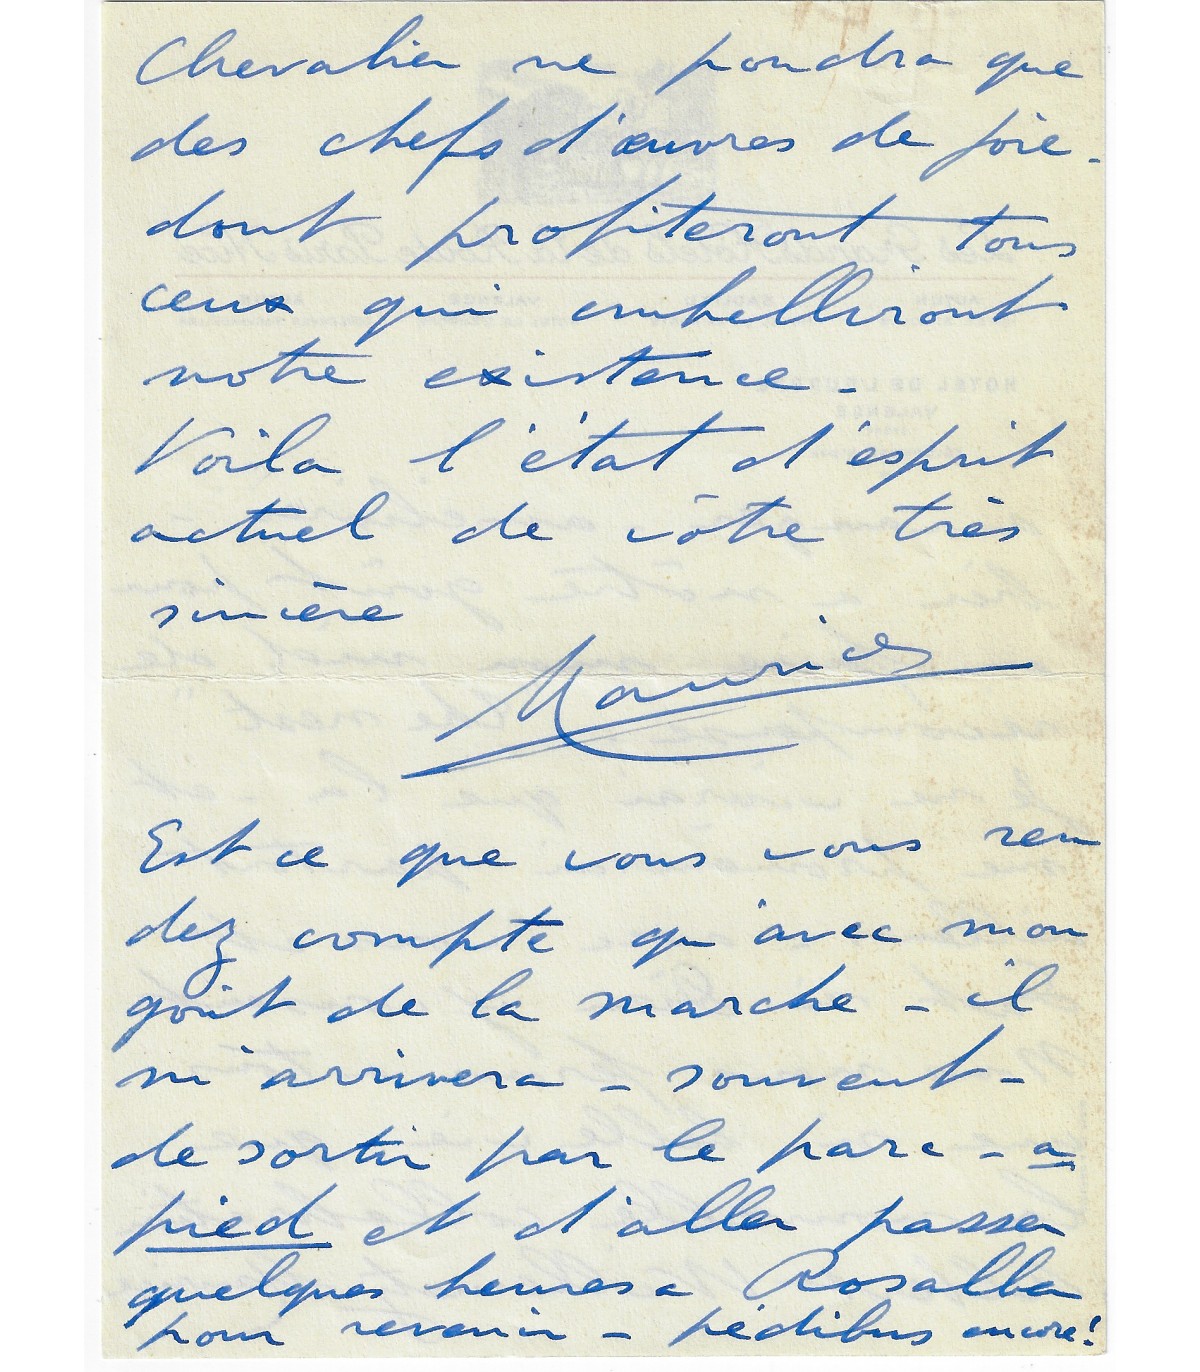 Chevalier ne pondra que
des chefs d'œuvres de joie -
dont profiteront tous
ceux qui embelliront
notre existence -
Voila l'état d'ésprit
actuel de vôtre très
sincère
Maurice
Est ce que vous vous ren
dez compte qu'avec mon
goût de la marche - il
m'arrivera - souvent -
de sortir par le parc - a
pied et d'aller passer
quelques heures a Rosalba
pour revenir - pédibus encore!